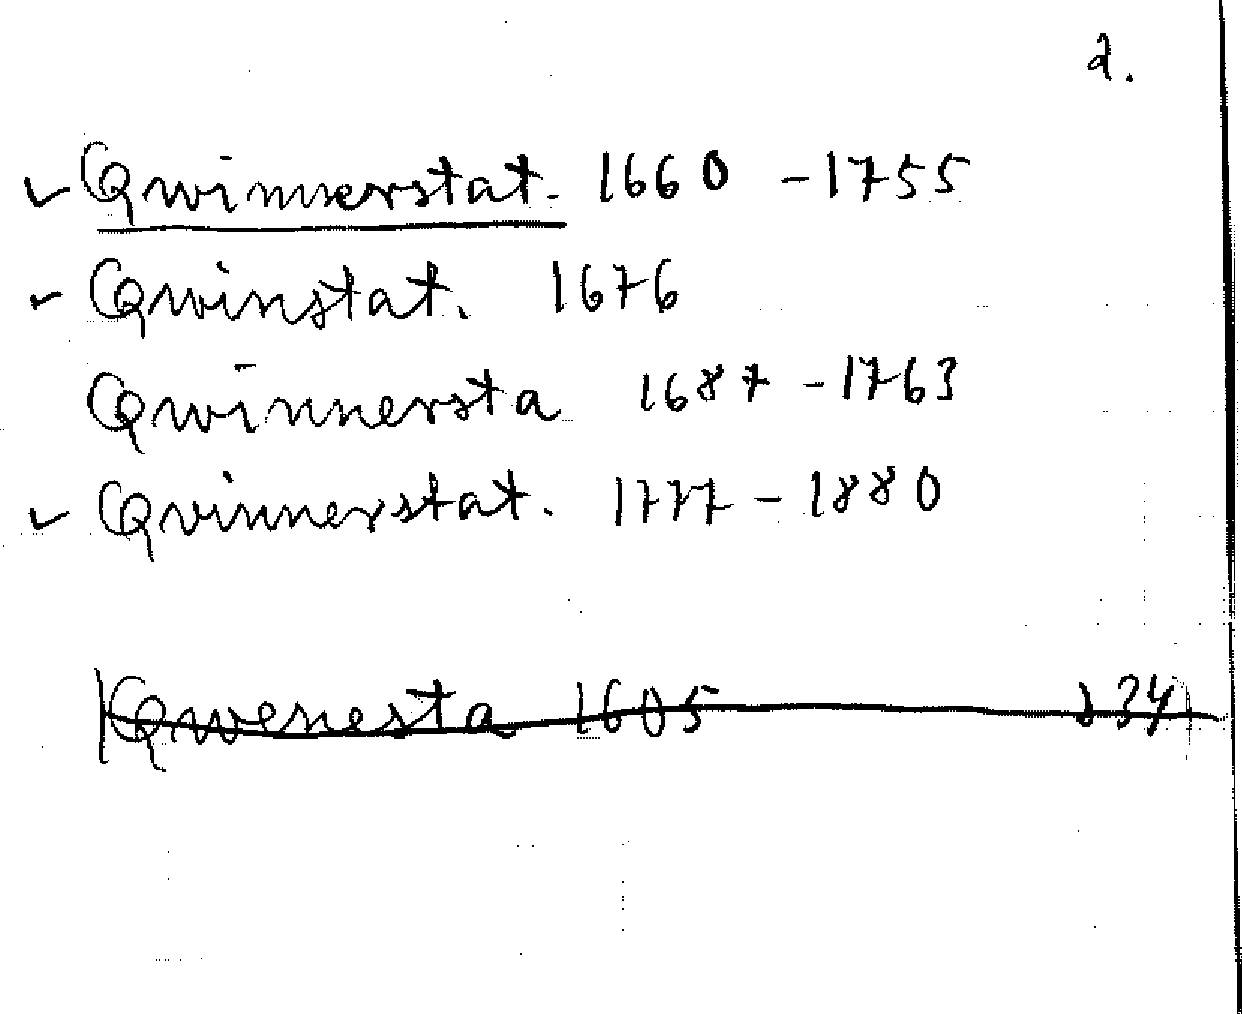 2.
✓ Qwinnerstat. 1660 - 1755
✓ Qwinstat. 1676
Qwinnersta 1687 - 1763
✓ Qvinnerstat. 1777 - 1880
Qwenesta 1605 J 34